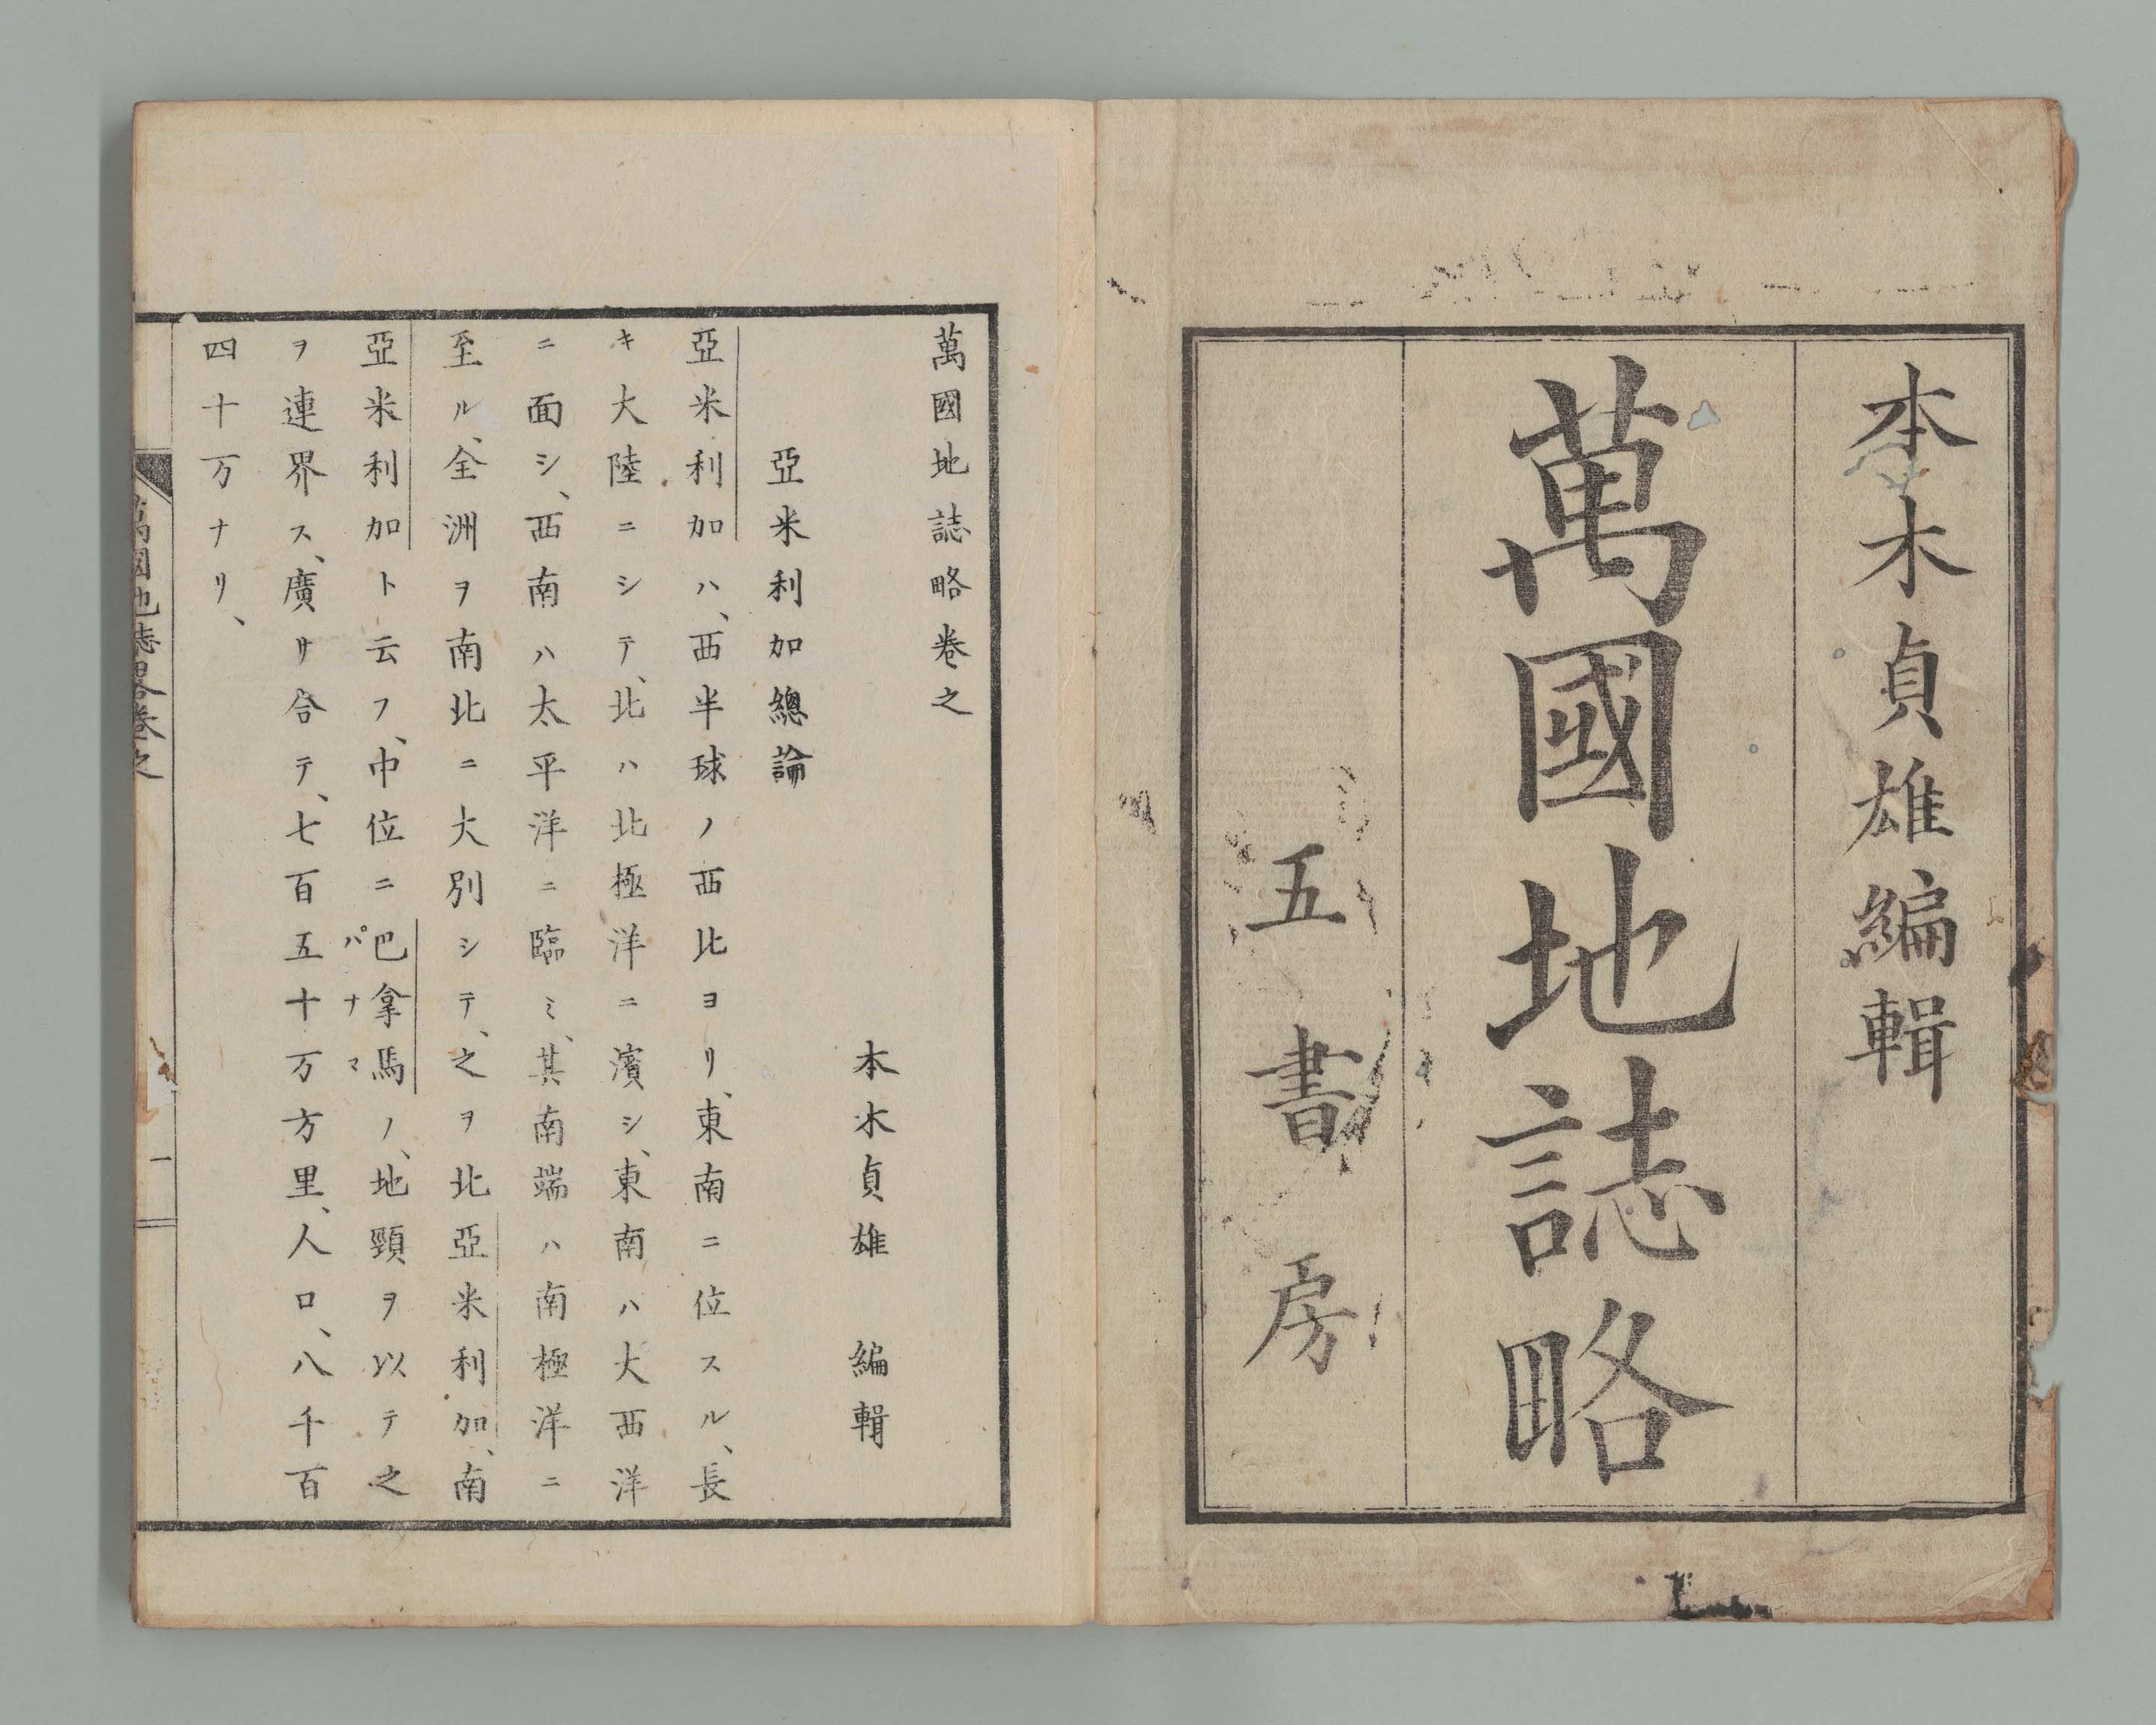 本木貞雄編輯
萬國地誌略
五書房
萬國地誌略卷之
本木貞雄 編輯
亞米利加總論
亞米利加ハ、西半球ノ西北ヨリ、東南ニ位スル、長
キ大陸ニシテ、北ハ北極洋ニ濱シ、東南ハ大西洋
ニ面シ、西南ハ太平洋ニ臨ミ、其南端ハ南極洋ニ
至ル、全洲ヲ南北ニ大別シテ、之ヲ北亞米利加、南
亞米利加ト云フ、中位ニ巴拿馬ノ、地頸ヲ以テ之
パナマ
ヲ連界ス、廣サ合テ、七百五十万方里、人口、八千百
四十万ナリ、
萬國地誌畧卷之
一